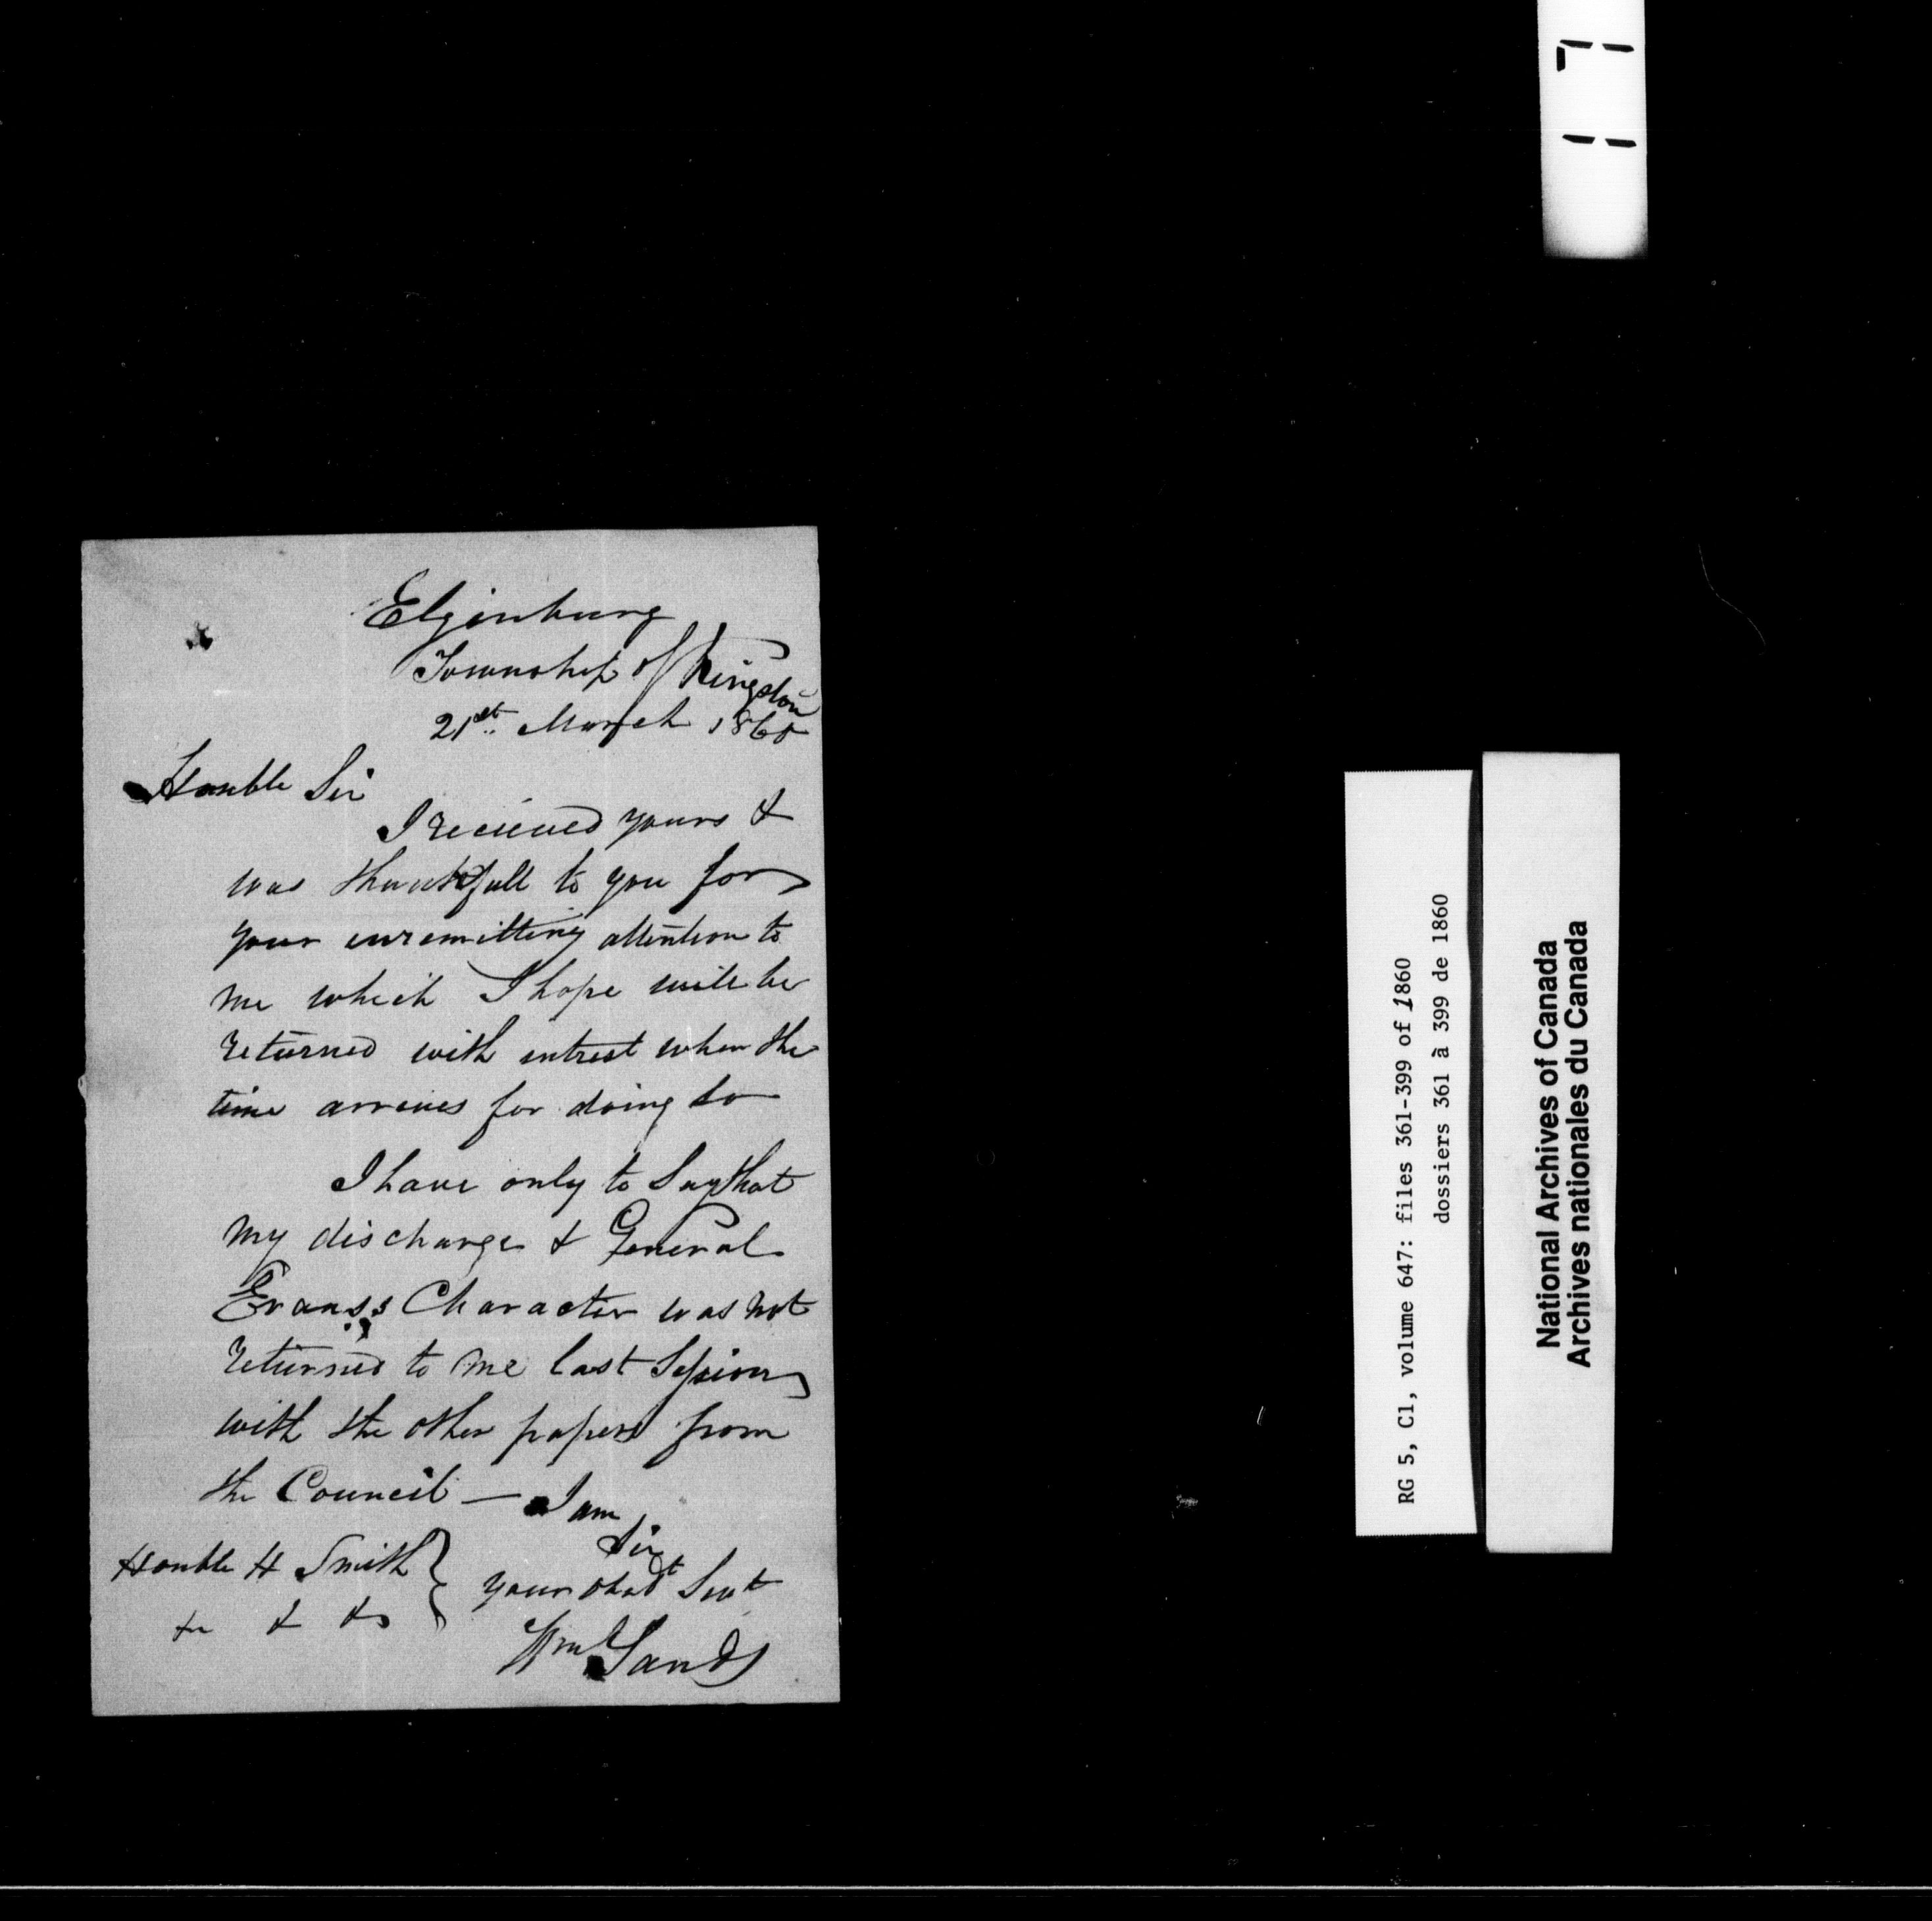 Elginburg
Township of Kingston
21st March 1860
Honble Sir
I recieved yours &
was thankfull to you for
your unremitting attention to
me which I hope will be
returned with intrest when the
time arrives for doing so
I have only to Say that
my discharge & General
Evans's Character was not
returned to me last Session
with the other papers from
the Council — I am
Sir
Honble H Smith
your obdt Sevt
& & &
Wm Sands
RG 5, C1, volume 647: files 361-399 of 1860
dossiers 361 à 399 de 1860
National Archives of Canada
Archives nationales du Canada